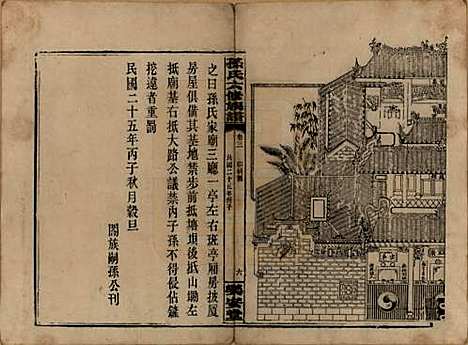 之曰孫氏家廟三廳一亭左右班亭廂房披厦
房屋俱備其基地禁步前抵塘埧後抵山塝左
抵廟基右抵大路公議禁內子孫不得侵佔鏟
挖違者重罰
民國二十五年丙子秋月穀旦
閤族嗣孫公刊
孫氏六修族譜
卷二
民國二十五年丙子
六
樂安堂